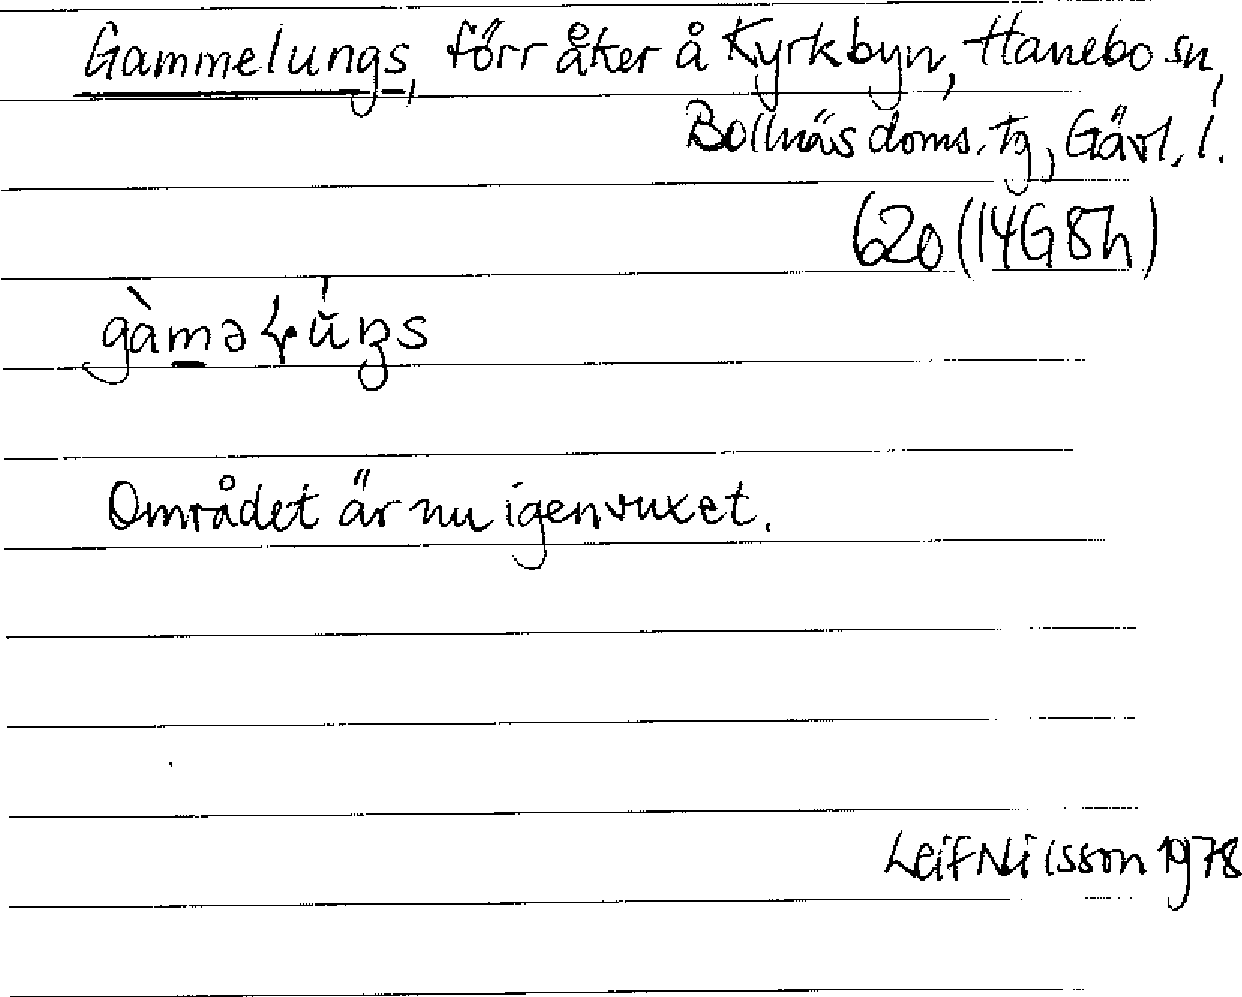 Gammelungs, förr åker å Kyrkbyn, Hanebo sn,
Bollnäs doms. tg, Gävl. l.
620 (14G8h)
Området är nu igenvuxet.
Leif Nilsson 1978